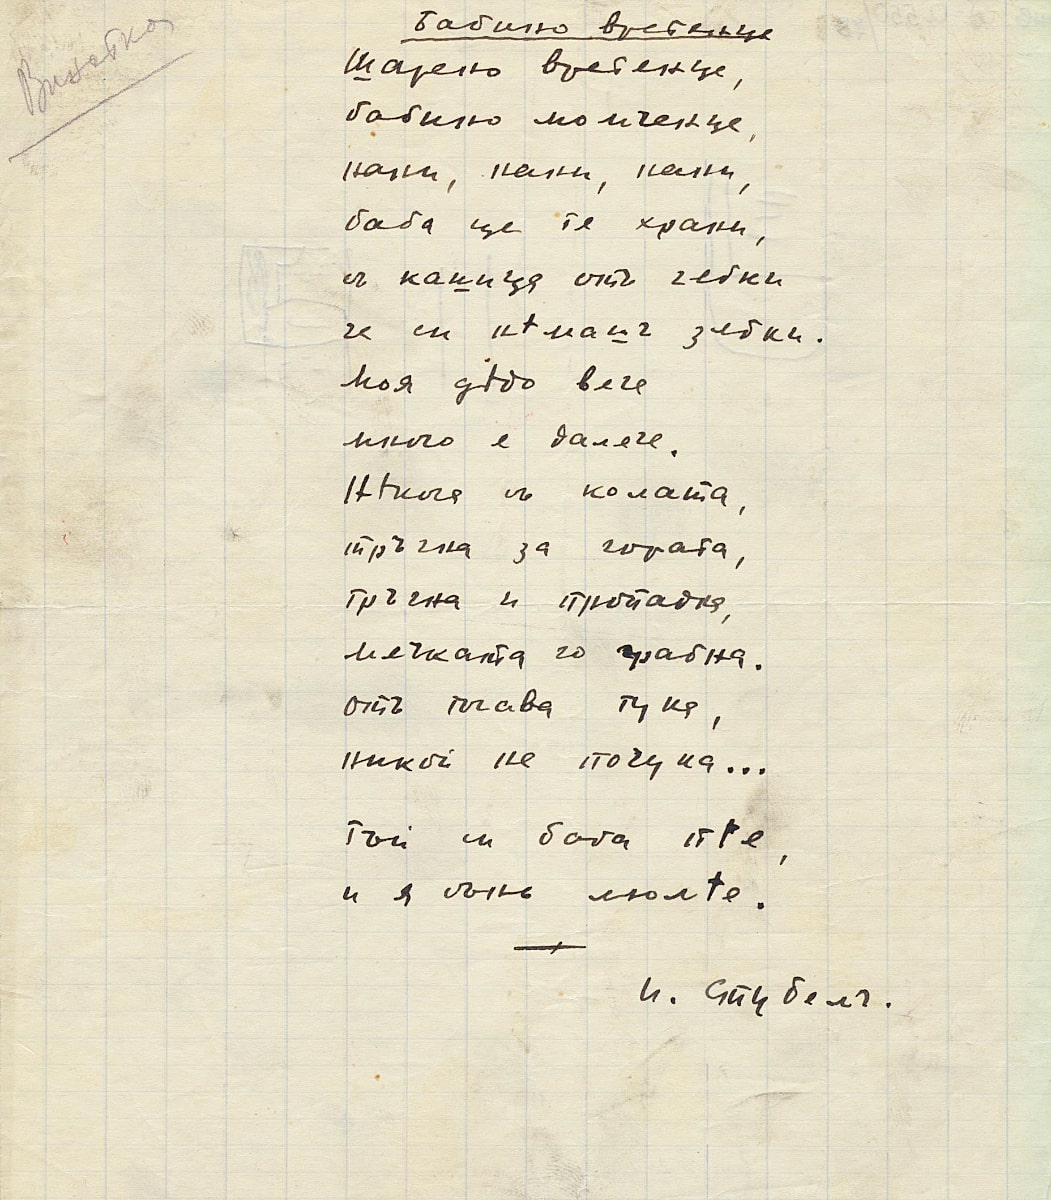 Винетка
Бабино вретенце
Шарено вретенце,
бабино момченце,
нани, нани, нани,
баба ще те храни,
съ кашица отъ
че си нѣмашъ
Моя дѣдо вече
много е далече.
Нѣкога съ колата,
тръгна за гората,
тръгна и пропадна,
мечката го грабна.
отъ тогава тука,
никой не почука...
Тъй си баба пѣе,
и я сънь люлѣе.
И. Стубелъ.